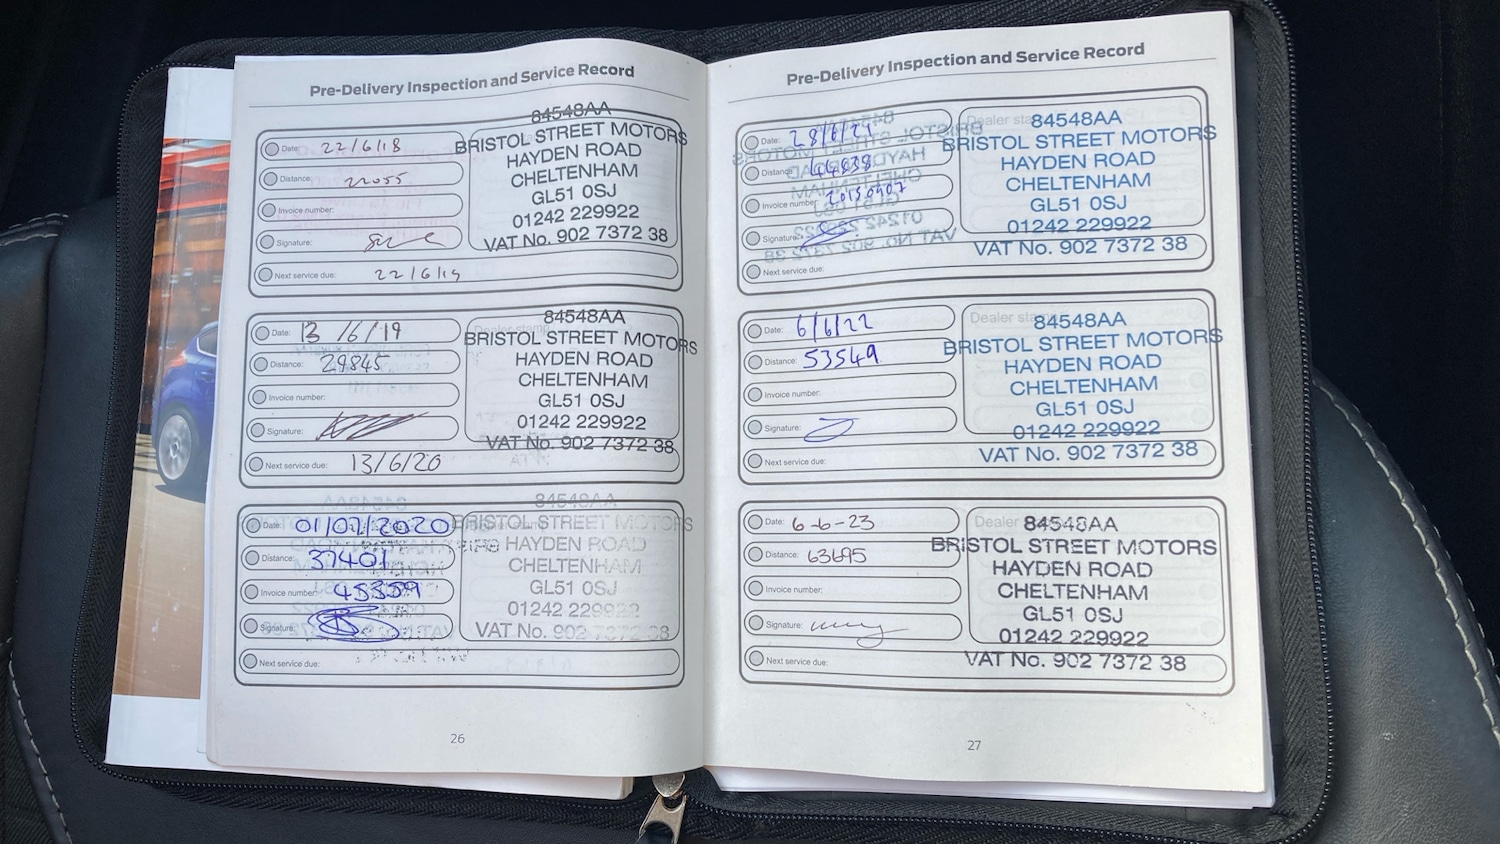 Pre-Delivery Inspection and Service Record
Date: 22/6/18
Distance: 22055
Invoice number:
Signature:
Next service due: 22/6/19
84548AA
BRISTOL STREET MOTORS
HAYDEN ROAD
CHELTENHAM
GL51 0SJ
01242 229922
VAT No. 902 7372 38
Date: 13/6/19
Distance: 29845
Invoice number:
Signature:
Next service due: 13/6/20
Dealer stamp
84548AA
BRISTOL STREET MOTORS
HAYDEN ROAD
CHELTENHAM
GL51 0SJ
01242 229922
VAT No. 902 7372 38
Date: 01/07/2020
Distance: 37401
Invoice number: 45359
Signature:
Next service due:
84548AA
BRISTOL STREET MOTORS
HAYDEN ROAD
CHELTENHAM
GL51 0SJ
01242 229922
VAT No. 902 7372 38
26
Pre-Delivery Inspection and Service Record
Date: 28/6/21
Distance: 44838
Invoice number:
Signature:
Next service due:
Dealer stamp
84548AA
BRISTOL STREET MOTORS
HAYDEN ROAD
CHELTENHAM
GL51 0SJ
01242 229922
VAT No. 902 7372 38
Date: 6/6/22
Distance: 53549
Invoice number:
Signature:
Next service due:
Dealer stamp
84548AA
BRISTOL STREET MOTORS
HAYDEN ROAD
CHELTENHAM
GL51 0SJ
01242 229922
VAT No. 902 7372 38
Date: 6-6-23
Distance: 63695
Invoice number:
Signature:
Next service due:
Dealer stamp
84548AA
BRISTOL STREET MOTORS
HAYDEN ROAD
CHELTENHAM
GL51 0SJ
01242 229922
VAT No. 902 7372 38
27